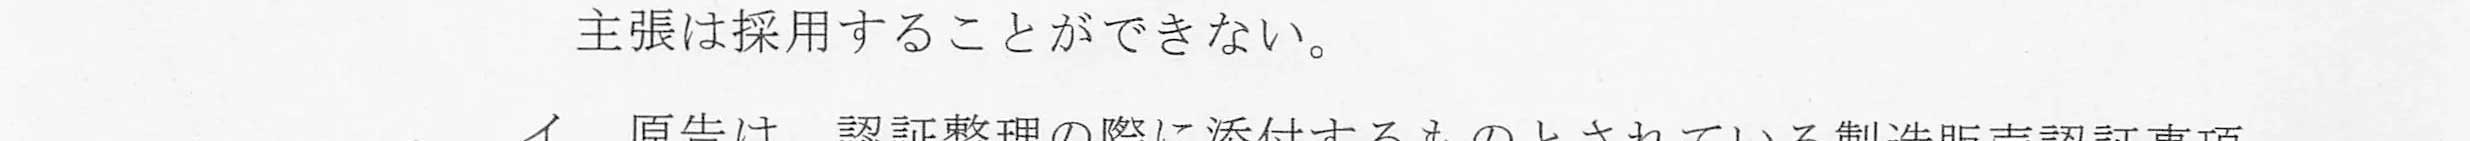 主張は採用することができない。
イ 原告は、認証整理の際に添付するものとされている製造販売認証事項